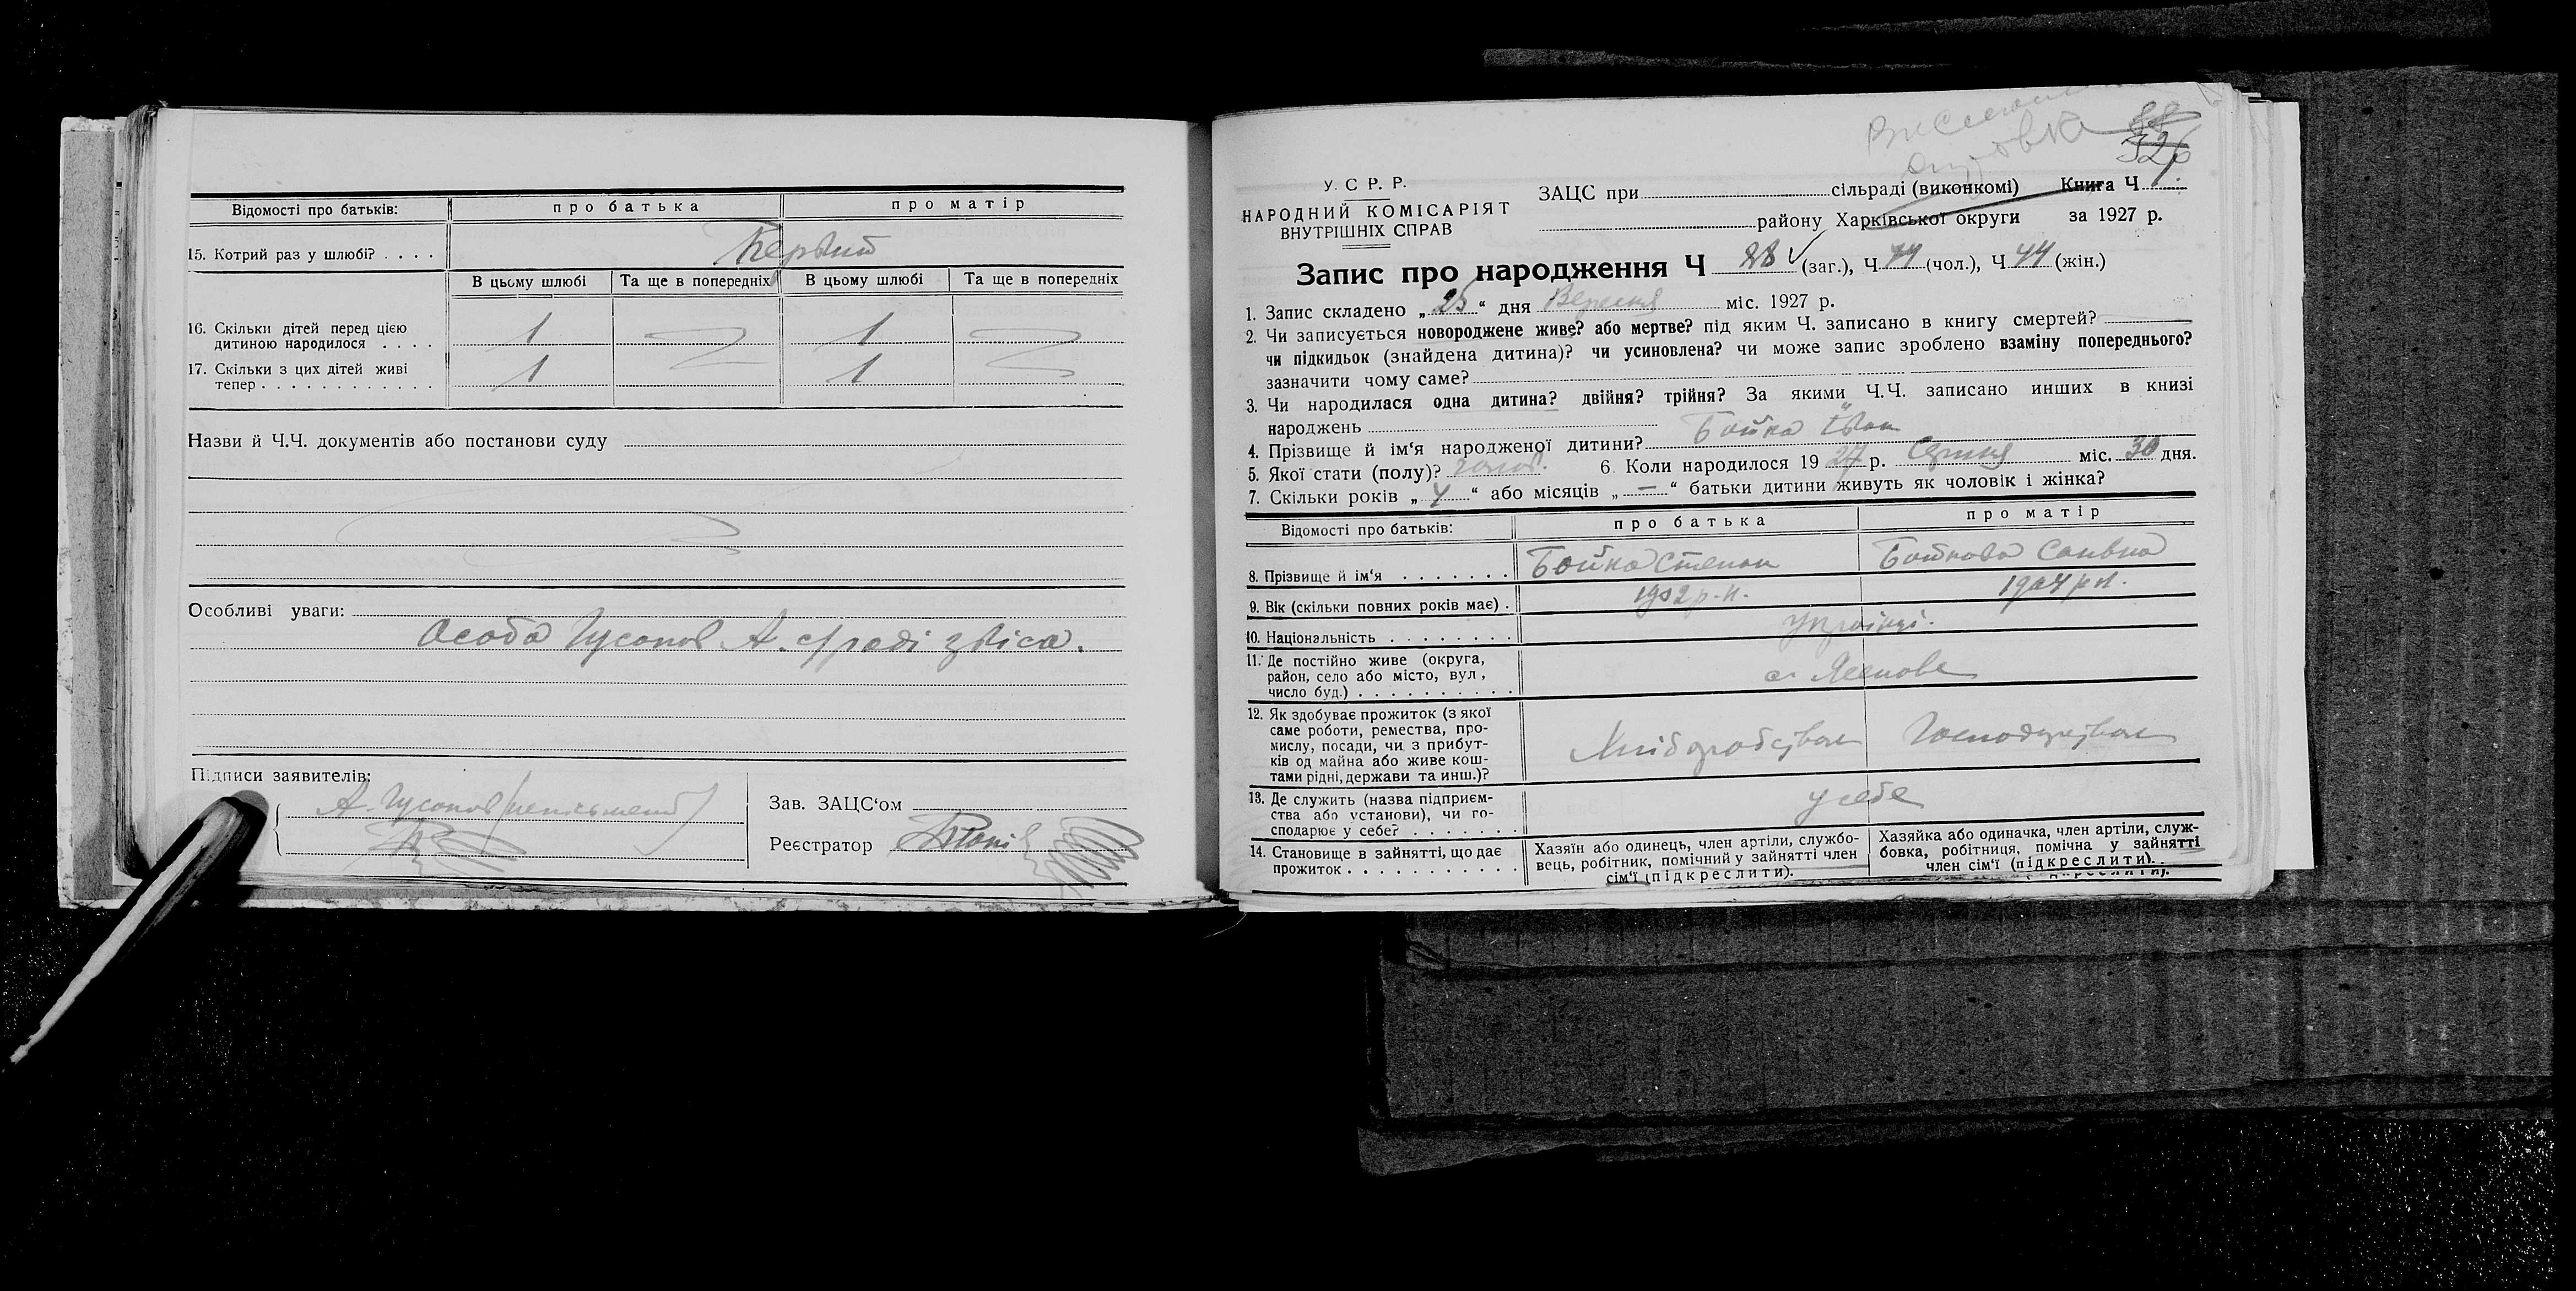 Відомості про батьків: про батька про матір
15. Котрий раз у шлюбі? . . . . Первий
В цьому шлюбі Та ще в попередніх В цьому шлюбі Та ще в попередніх
16. Скільки дітей перед цією
дитиною народилося . . . . 1 1
17. Скільки з цих дітей живі
тепер . . . . . . . . . . . . . 1 1
Назви й Ч.Ч. документів або постанови суду
Особливі уваги:
Особа А. с/раді звіса.
Підписи заявителів:
А.
Зав. ЗАЦС‘ом
Реєстратор
326
У. С Р. Р.
НАРОДНИЙ КОМІСАРІЯТ
ВНУТРІШНІХ СПРАВ
ЗАЦС при сільраді (виконкомі) Книга Ч
району Харківської округи за 1927 р.
Запис про народження Ч 88 (заг.), Ч 44 (чол.), Ч 44 (жін.)
1. Запис складено „ 25 “ дня Вересня міс. 1927 р.
2. Чи записується новороджене живе? або мертве? під яким Ч. записано в книгу смертей?
чи підкидьок (знайдена дитина)? чи усиновлена? чи може запис зроблено взаміну попереднього?
зазначити чому саме?
3. Чи народилася одна дитина? двійня? трійня? За якими Ч.Ч. записано инших в книзі
народжень
4. Прізвище й ім‘я народженої дитини? Бойко Іван
5. Якої стати (полу)? чолов. 6 Коли народилося 19 27 р. Серпня міс. 30 дня.
7. Скільки років „ 4 “ або місяців „ — “ батьки дитини живуть як чоловік і жінка?
Відомості про батьків: про батька про матір
8. Прізвище й ім‘я . . . . . . . Бойко Степан Бойкова
9. Вік (скільки повних років має) . 1902 р. н. 1904 р н.
10. Національність . . . . . . . . Українці.
11. Де постійно живе (округа,
район, село або місто, вул,
число буд.) . . . . . . . . . .
12. Як здобуває прожиток (з якої
саме роботи, ремества, про-
мислу, посади, чи з прибут-
ків од майна або живе кош-
тами рідні, держави та инш.)?
Хліборобством Господарством
13. Де служить (назва підприєм-
ства або установи), чи го-
сподарює у себе? . . . . . . . у себе
14. Становище в зайнятті, що дає
прожиток . . . . . . . . . . .
Хазяїн або одинець, член артіли, службо-
вець, робітник, помічний у зайнятті член
сім‘ї (підкреслити).
Хазяйка або одиначка, член артіли, служ-
бовка, робітниця, помічна у зайнятті
член сім‘ї (підкреслити).